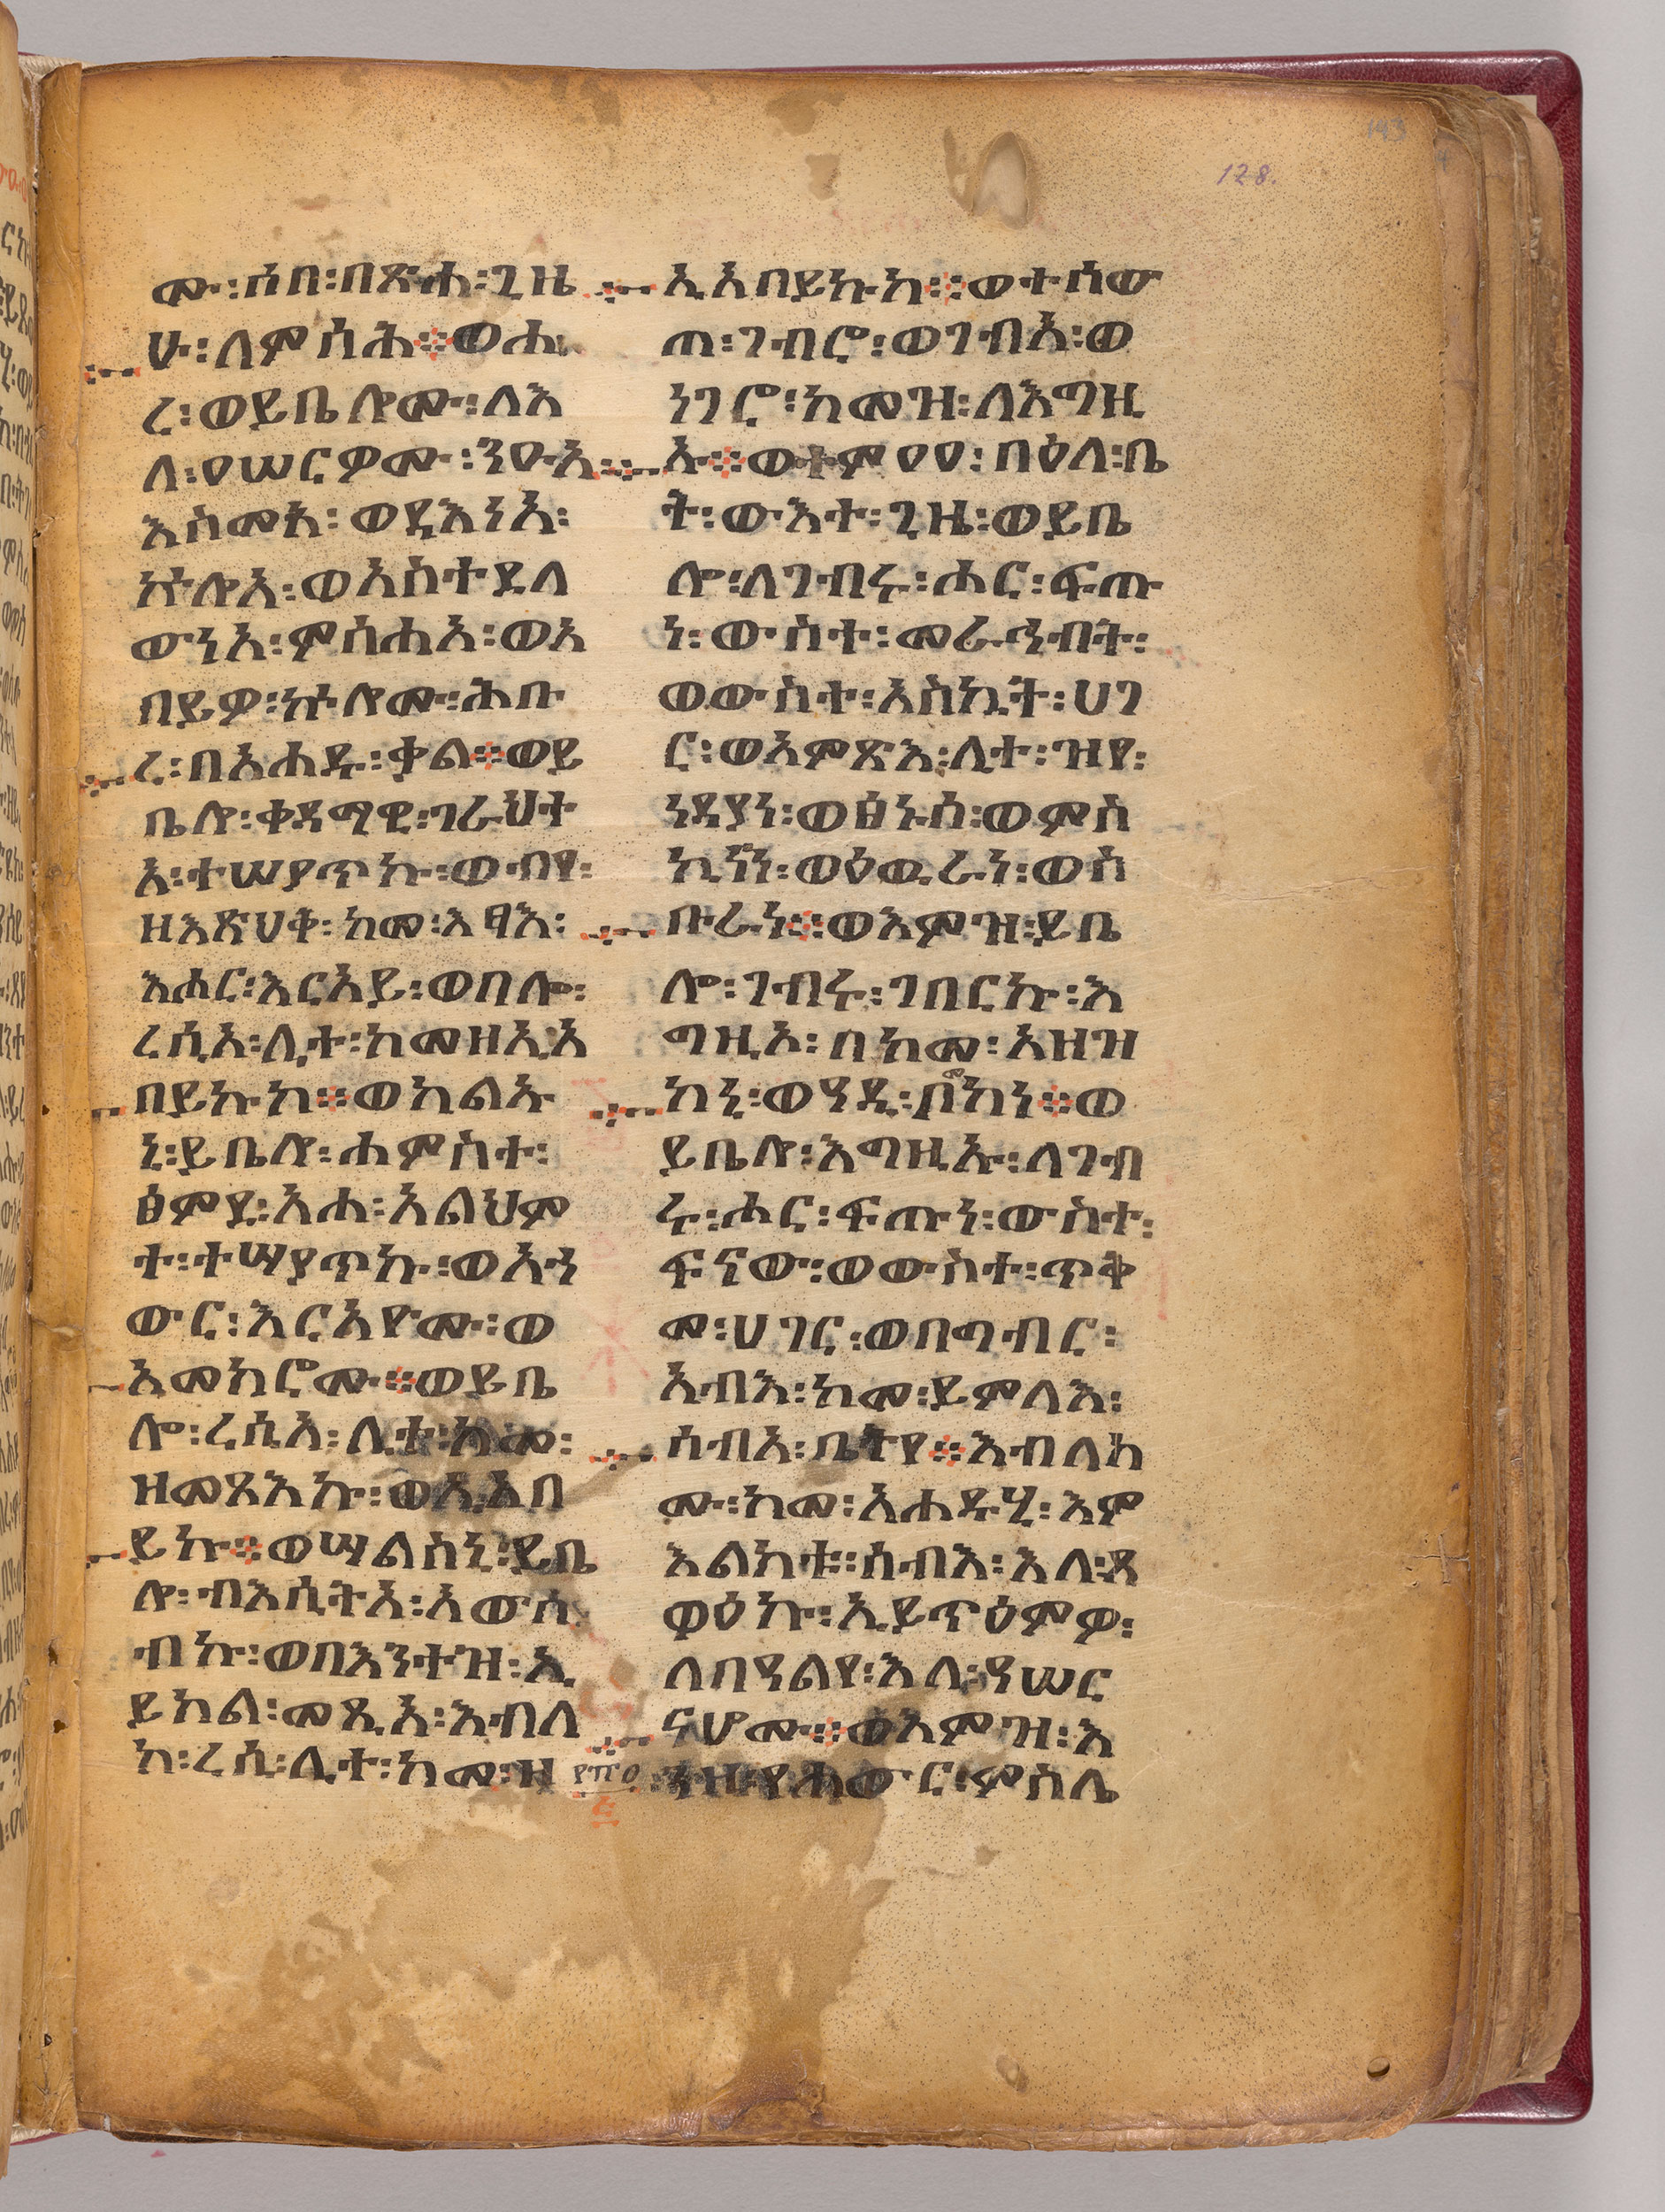 143
128.
ሙ፡ሶበ፡በጽሐ፡ጊዜ
ሁ፡ለምሳሕ፨ወሖ
ረ፡ወይቤሎሙ፡ለእ
ለ፡ዐሠርዎሙ፡ንዑአ
እስመአ፡ወዳእነአ፡
ኵሎአ፡ወአስተዳለ
ውነአ፡ምሳሐአ፡ወአ
በይዎ፡ኵሎሙ፡ሕቡ
ረ፡በአሐዱ፡ቃል፨ወይ
ቤሎ፡ቀዳማዊ፡ገራህተ
አ፡ተሣየጥኩ፡ወብየ፡
ዘእጽህቅ፡ከመ፡እፃእ፡
እሖር፡እርአይ፡ወበሎ፡
ረሲአ፡ሊተ፡ከመዘኢአ
በይኩከ፨ወካልኡ
ኒ፡ይቤሎ፡ሐምስተ፡
ፅምደ፡አሐ፡አልህም
ተ፡ተሣየጥኩ፡ወአን
ውር፡እርአዮሙ፡ወ
አመክሮሙ፨ወይቤ
ሎ፡ረሲአ፡ሊተ፡ከመ፡
ዘመጻእኩ፡ወኢአበ
ይኩ፨ወሣልስኒ፡ይቤ
ሎ፡ብእሲትአ፡አውሰ
ብኩ፡ወበእንተዝ፡ኢ
ይክል፡መጺአ፡እብለ
ከ፡ረሲ፡ሊተ፡ከመ፡ዘ
ኢአበይኩከ፨ወተሰው
ጠ፡ገብሮ፡ወገብአ፡ወ
ነገሮ፡ከመዝ፡ለእግዚ
ኡ፨ወተምዐዐ፡በዕለ፡ቤ
ት፡ውእተ፡ጊዜ፡ወይቤ
ሎ፡ለገብሩ፡ሖር፡ፍጡ
ነ፡ውስተ፡መራኅብት፡
ወውስተ፡አስኳት፡ሀገ
ር፡ወአምጽእ፡ሊተ፡ዝየ፡
ነዳያነ፡ወፅኑሰ፡ወምስ
ኪነነ፡ወዕዉራነ፡ወስ
ቡራነ፨ወእምዝ፡ይቤ
ሎ፡ገብሩ፡ገበርኩ፡እ
ግዚኦ፡በከመ፡አዘዝ
ከኒ፡ወዓዲ፡ቦመከነ፨ወ
ይቤሎ፡እግዚኡ፡ለገብ
ሩ፡ሖር፡ፍጡነ፡ውስተ፡
ፍኖው፡ወውስተ፡ጥቅ
መ፡ሀገር፡ወበግብር፡
አብእ፡ከመ፡ይምላእ፡
ሰብአ፡ቤትየ፨እብለክ
ሙ፡ከመ፡አሐዱሂ፡እም
እልክቱ፡ሰብእ፡እለ፡ጸ
ዋዕኩ፡ኢይጥዕምዎ፡
ለበዓልየ፡እለ፡ዓሠር
ናሆሙ፨ወእምዝ፡እ
ንዘ፡የሐውር፡ምስሌ